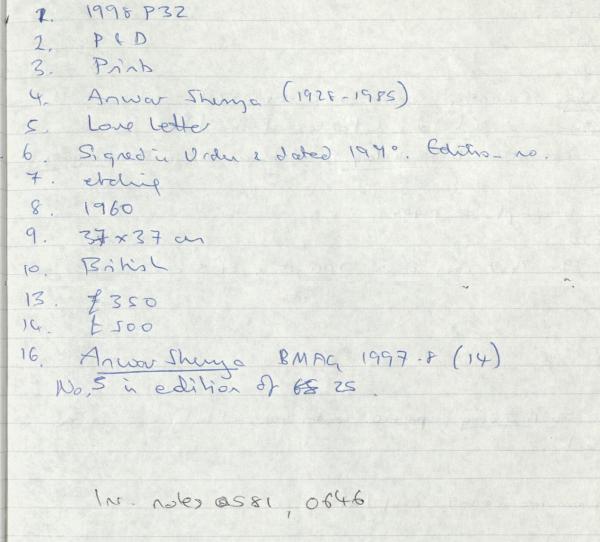 1. 1998 P32
2. P & D
3. Print
4. Anwar Shemza (1928-1985)
5. Love Letter
6. Signed in Urdu & dated 1970. Edition no.
7. etching
8. 1960
9. 37 x 37 cm
10. British
13. £350
14. £500
16. Anwar Shemza BMAG 1997-8 (14)
No, 5 in edition of 25
Inv. notes 0581, 0646